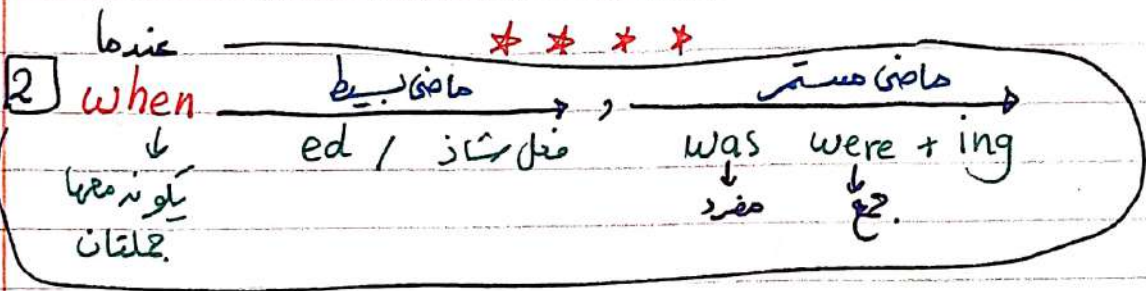 عندما ☆ ☆ ☆ ☆
2 when ماضي بسيط , ماضي مستمر
ed / فعل شاذ was were + ing
يكون معها مفرد جمع.
جملتان.